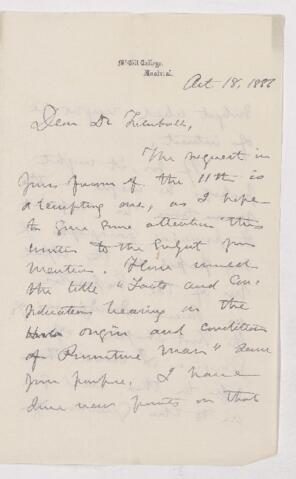 McGill College,
Montreal.
Oct 18, 1887
Dear Dr
The request in
your favour of the 11th is
a tempting one, as I hope
to give some attention this
winter to the subject you
mention. How would
the title "Facts and Con-
siderations bearing on the
origin and condition
of Primitive Man" serve
your purpose. I have
some new points on that